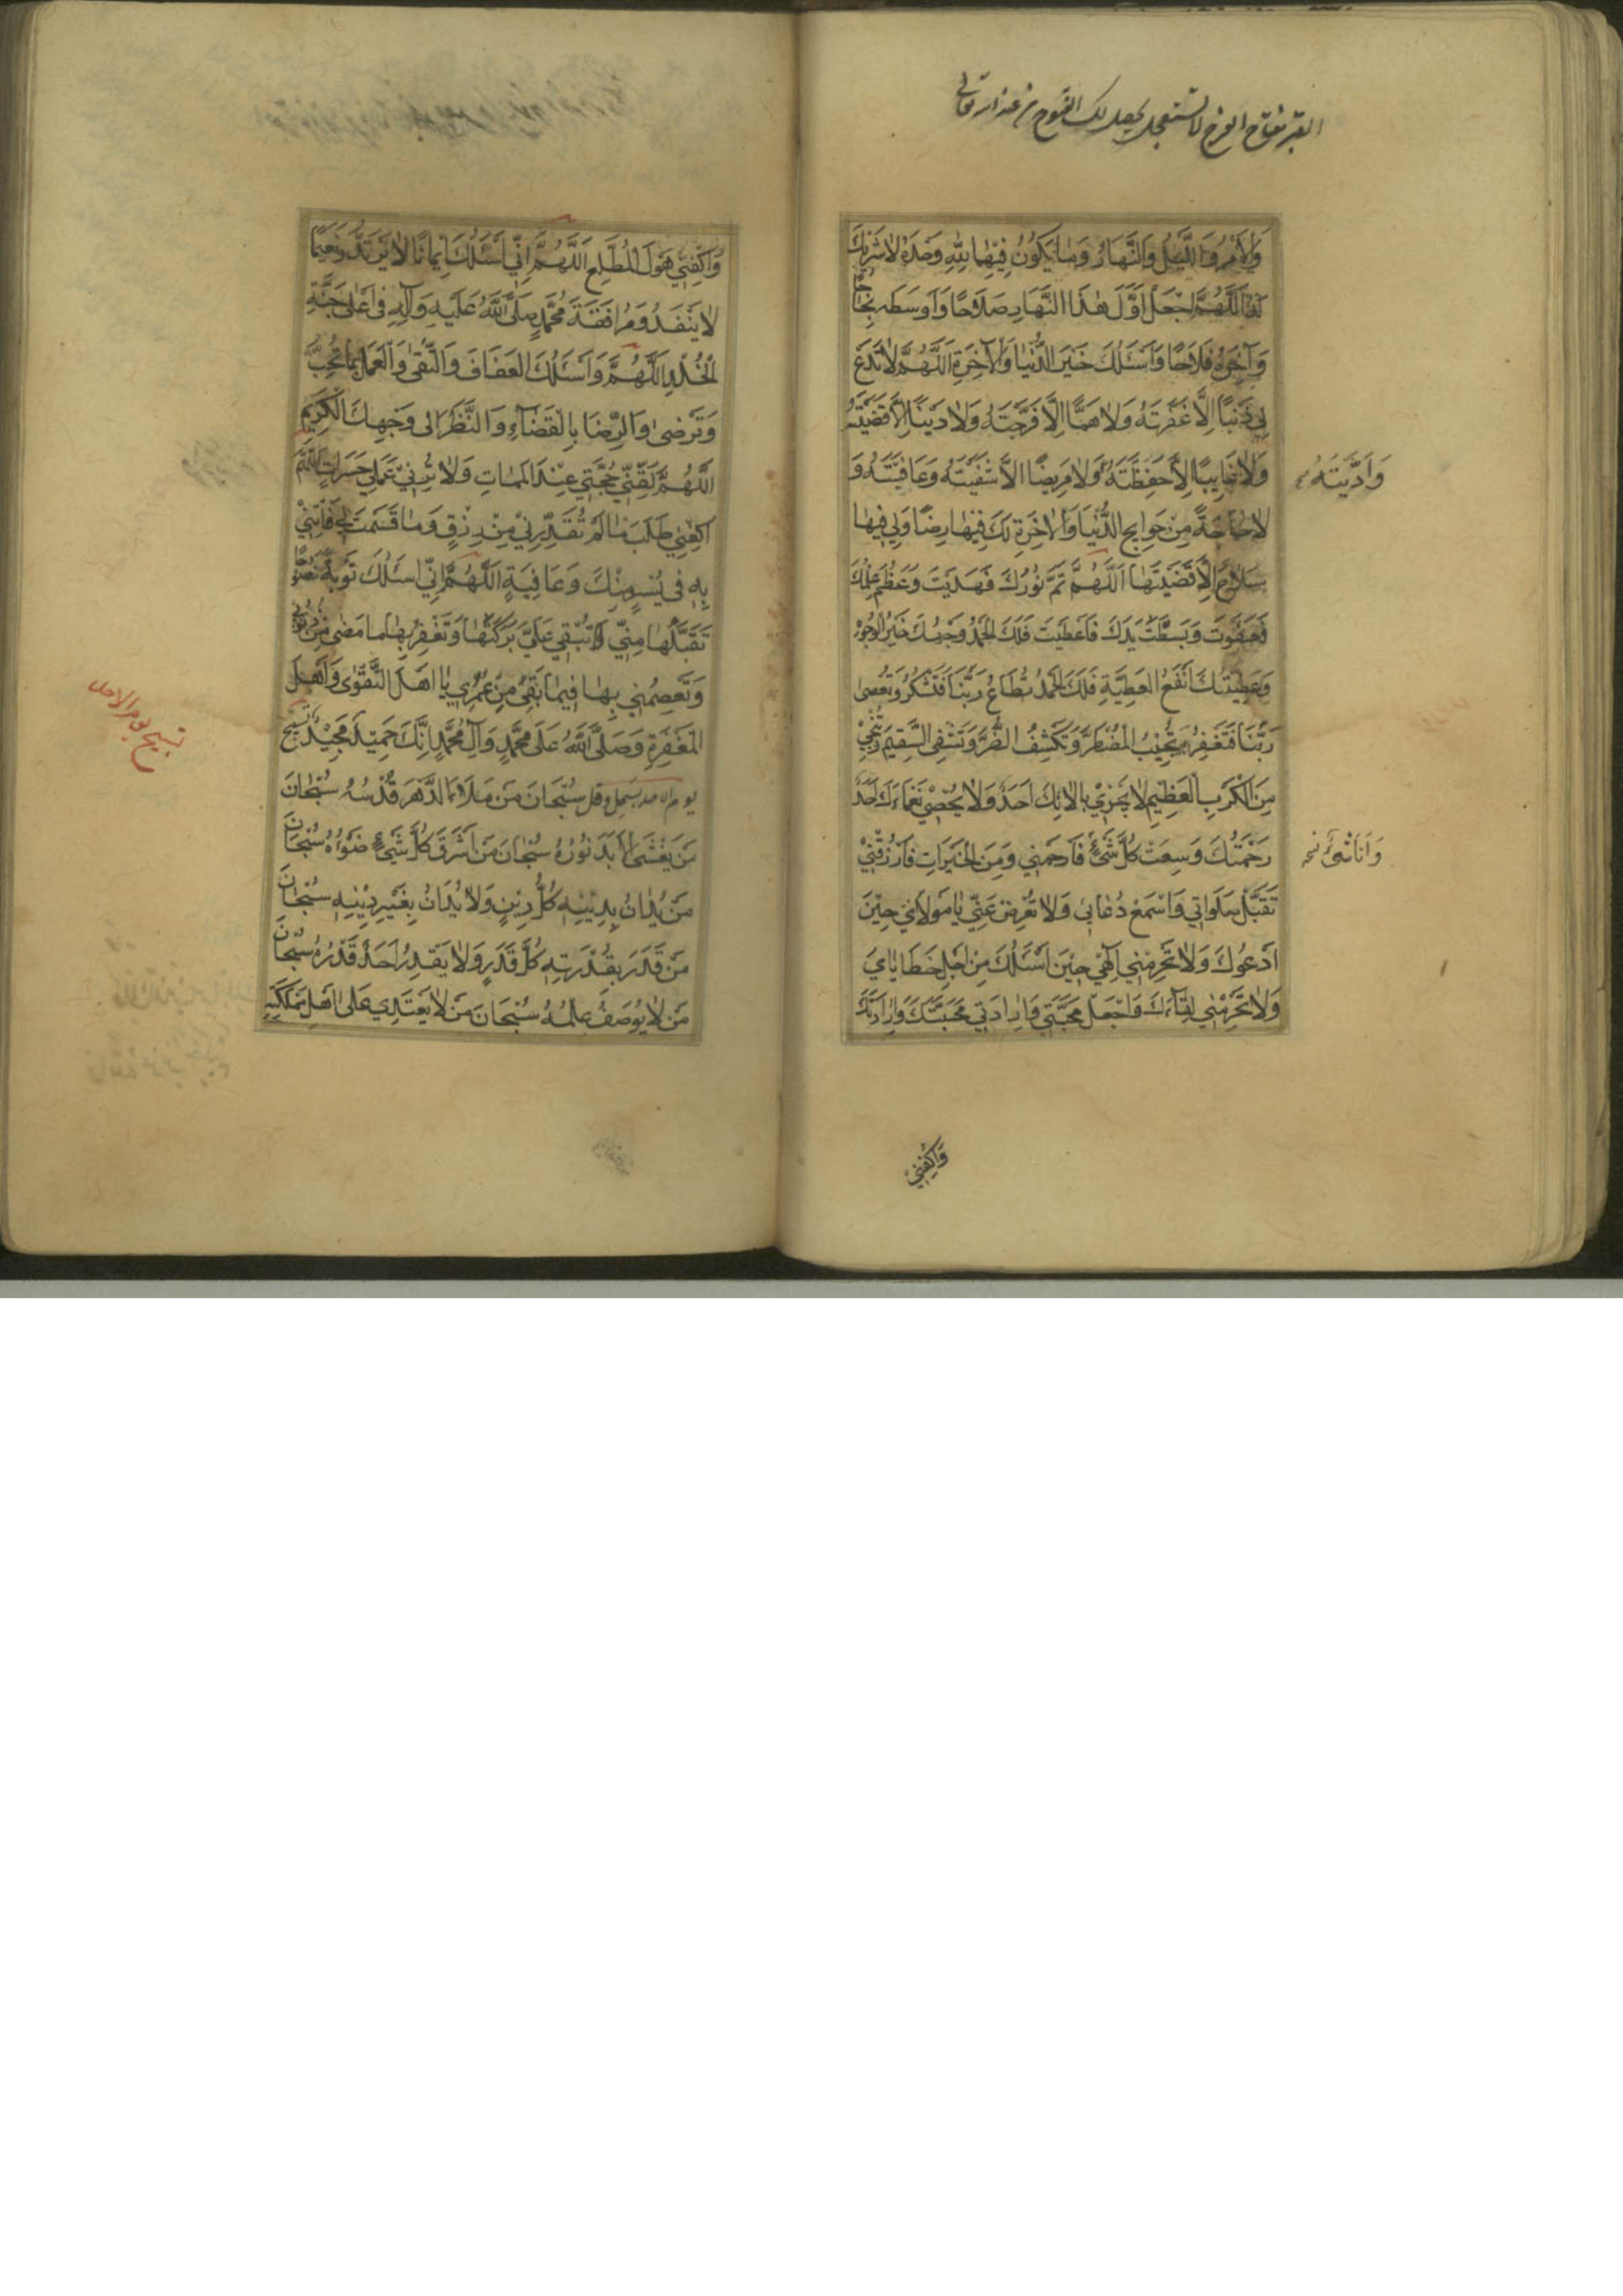 الصبر مفتاح الفرج لا تستعجل يحصل لك الفتوح من عند الله تعالى
وَالْاَمْرُ وَاللَّيْلُ وَالنَّهَارُ وَمَا يَكُونُ فِيْهِمَا لِلّٰهِ وَحْدَهُ لَا شَرِيْكَ
لَهُ اَللّٰهُمَّ اجْعَلْ اَوَّلَ هٰذَا النَّهَارِ صَلَاحًا وَاَوْسَطَه نَجَاحًا
وَآخِرَهُ فَلَاحًا وَاَسْئَلُكَ خَيْرَ الدُّنْيَا وَالْآخِرَةِ اَللّٰهُمَّ لَا تَدَعْ
لِي ذَنْبًا اِلَّا غَفَرْتَهُ وَلَا هَمًّا اِلَّا فَرَّجْتَهُ وَلَا دَيْنًا اِلَّا قَضَيْتَهُ
وَلَا غَايِبًا اِلَّا حَفِظْتَهُ وَلَا مَرِيضًا اِلَّا شَفَيْتَهُ وَعَافَيْتَهُ وَ
وَاَدَّيْتَهُ
لَا حَاجَةً مِنْ حَوَايِجِ الدُّنْيَا وَالْاٰخِرَةِ لَكَ فِيْهَا رِضًا وَلِي فِيهَا
صَلَاحٌ اِلَّا قَضَيْتَهَا اَللّٰهُمَّ تَمَّ نُوْرُكَ فَهَدَيْتَ وَعَظُمَ حِلْمُكَ
فَعَفَوْتَ وَبَسَطْتَ يَدَكَ فَاَعْطَيْتَ فَلَكَ الْحَمْدُ وَجْهُكَ خَيْرُ الْوُجُوْهِ
وَعَطِيَّتُكَ اَنْفَعُ الْعَطِيَّةِ فَلَكَ الْحَمْدُ تُطَاعُ رَبَّنَا فَتَشْكُرُ وَتُعْصٰى
رَبَّنَا فَتَغْفِرُ تُجِيْبُ الْمُضْطَرَّ وَتَكْشِفُ الضُّرَّ وَتَشْفِي السَّقِيْمَ وَتُنْجِيْ
مِنَ الْكَرْبِ الْعَظِيْمِ لَا يَجْزِيْ بِاٰلَائِكَ اَحَدٌ وَلَا يُحْصِيْ نَعْمَاءَكَ اَحَدٌ
رَحْمَتُكَ وَسِعَتْ كُلَّ شَيْءٍ فَارْحَمْنِي وَمِنَ الْخَيْرَاتِ فَارْزُقْنِيْ
وَاَنَا شَيْءٌ
تَقَبَّلْ صَلَوَاتِي وَاسْمَعْ دُعَائِي وَلَا تُعْرِضْ عَنِّي يَا مَوْلَايَ حِيْنَ
اَدْعُوكَ وَلَا تَحْرِمْنِي اِلٰهِي حِيْنَ اَسْئَلُكَ مِنْ اَجْلِ خَطَايَايَ
وَلَا تَحْرِمْنِي لِقَاءَكَ وَاجْعَلْ مَحَبَّتِي وَاِرَادَتِي مَحَبَّتَكَ وَاِرَادَتَكَ
وَاكْفِنِي
وَاكْفِنِي هَوْلَ الْمُطَّلَعِ اَللّٰهُمَّ اِنِّي اَسْئَلُكَ اِيْمَانًا لَا يَرْتَدُّ وَنَعِيْمًا
لَا يَنْفَدُ وَمُرَافَقَةَ مُحَمَّدٍ صَلَّى اللّٰهُ عَلَيْهِ وَآلِهِ فِي اَعْلٰى جَنَّةِ
الْخُلْدِ اَللّٰهُمَّ وَاَسْئَلُكَ الْعَفَافَ وَالتُّقٰى وَالْعَمَلَ بِمَا تُحِبُّ
وَتَرْضٰى وَالرِّضَا بِالْقَضَاءِ وَالنَّظَرَ اِلٰى وَجْهِكَ الْكَرِيْمِ
اَللّٰهُمَّ لَقِّنِّي حُجَّتِي عِنْدَ الْمَمَاتِ وَلَا تُرِنِيْ عَمَلِي حَسَرَاتٍ اَللّٰهُمَّ
اكْفِنِي طَلَبَ مَا لَمْ تُقَدِّرْ لِيْ مِنْ رِزْقٍ وَمَا قَسَمْتَ لِي فَاْتِنِيْ
بِهِ فِي يُسْرٍ مِنْكَ وَعَافِيَةٍ اَللّٰهُمَّ اِنِّي اَسْئَلُكَ تَوْبَةً نَصُوْحًا
تَقَبَّلُهَا مِنِّي تُبْقِي عَلَيَّ بَرَكَتَهَا وَتَغْفِرُ بِهَا مَا مَضٰى مِنْ ذُنُوْبِي
وَتَعْصِمُنِي بِهَا فِيْمَا بَقِيَ مِنْ عُمْرِي يَا اَهْلَ التَّقْوٰى وَاَهْلَ
الْمَغْفِرَةِ وَصَلَّى اللّٰهُ عَلٰى مُحَمَّدٍ وَآلِ مُحَمَّدٍ اِنَّكَ حَمِيْدٌ مَجِيْدٌ تسبيح
تسبيح يوم الاحد
يوم الاحد بسمل وقل سُبْحَانَ مَنْ مَلَأَ الدَّهْرَ قُدْسُهُ سُبْحَانَ
مَنْ يَغْشَى الْاَبَدَ نُوْرُهُ سُبْحَانَ مَنْ اَشْرَقَ كُلَّ شَيْءٍ ضَوْءُهُ سُبْحَانَ
مَنْ يُدَانُ بِدِيْنِهِ كُلُّ دِيْنٍ وَلَا يُدَانُ بِغَيْرِ دِيْنِهِ سُبْحَانَ
مَنْ قَدَرَ بِقُدْرَتِهِ كُلَّ قَدَرٍ وَلَا يَقْدِرُ اَحَدٌ قَدْرَهُ سُبْحَانَ
مَنْ لَا يُوْصَفُ عِلْمُهُ سُبْحَانَ مَنْ لَا يَعْتَدِي عَلٰى اَهْلِ مَمْلَكَتِهِ